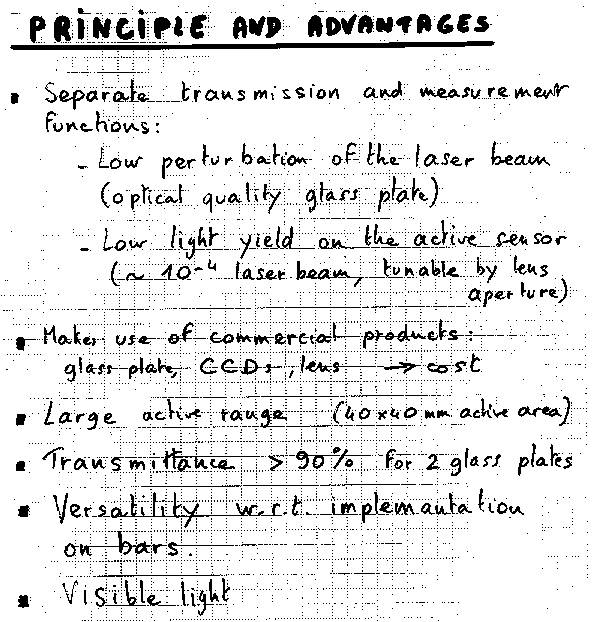 PRINCIPLE AND ADVANTAGES
▪ Separate transmission and measurement
functions:
- Low perturbation of the laser beam
(optical quality glass plate)
- Low light yield on the active sensor
(~ 10⁻⁴ laser beam, tunable by lens
aperture)
▪ Makes use of commercial products:
glass plate, CCDs, lens → cost
▪ Large active range (40x40 mm active area)
▪ Transmittance > 90% for 2 glass plates
▪ Versatility w.r.t. implemantation
on bars.
▪ Visible light